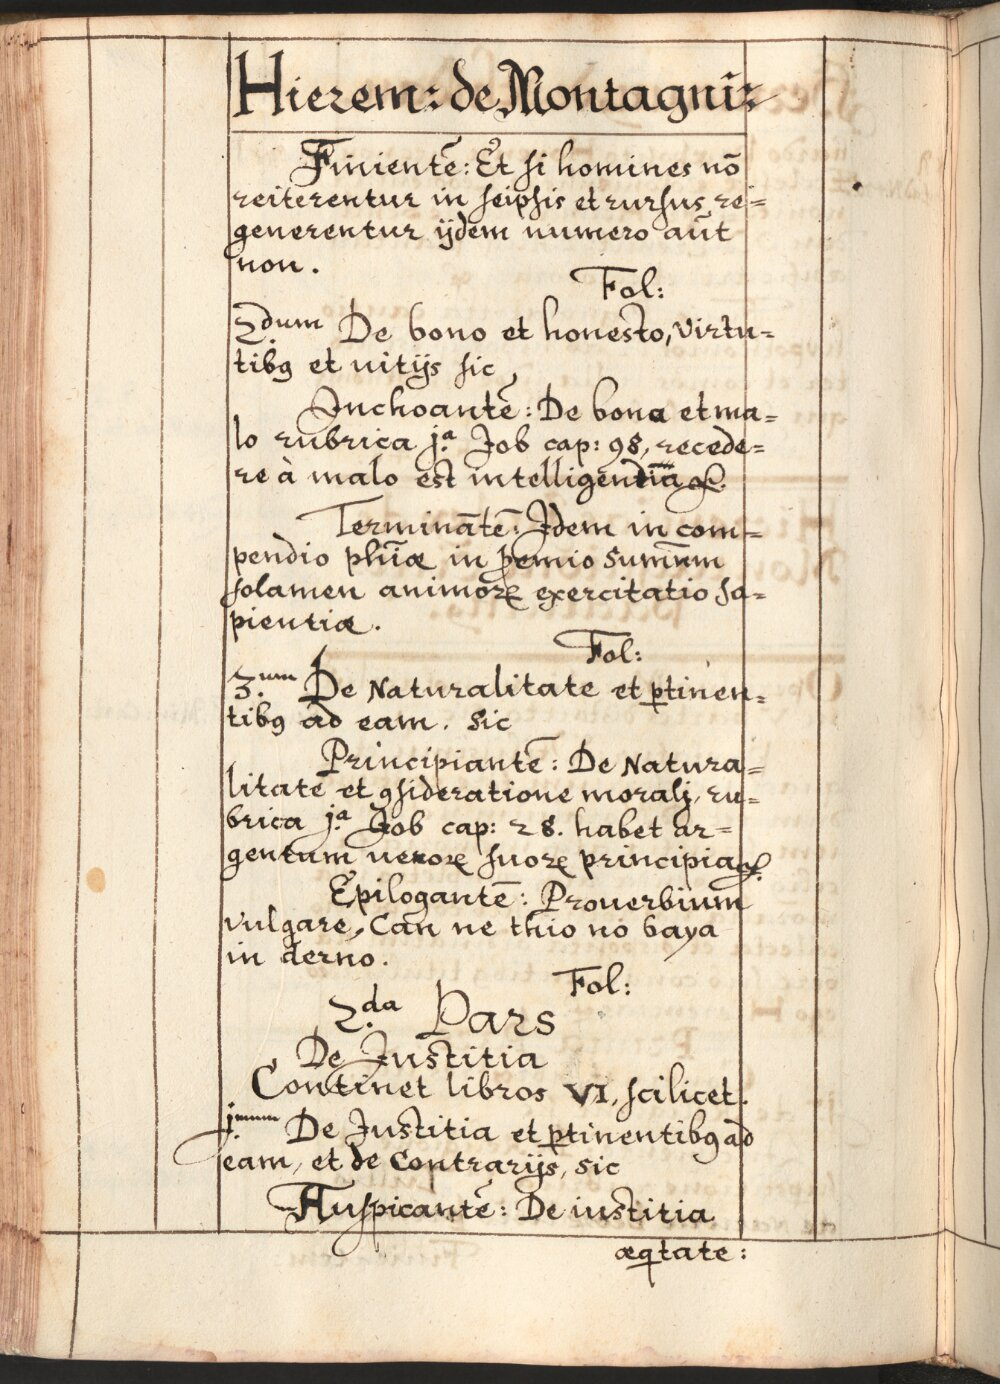 Hierem: de Montagnī:
Finientē: Et si homines nō
reiterentur in seipsis et rursus re=
generentur ijdem numero aūt
non.
Fol:
2.dum De bono et honesto, virtu=
tibꝫ et uitijs sic
Inchoantē: De bona et ma=
lo rubrica j.a Job cap: 98, recede=
re à malo est intelligentiā &.
Terminātē: Idem in com=
pendio phīæ in ꝓemio sum̄um
solamen animoꝝ exercitatio sa=
pientiæ.
Fol:
3.um De Naturalitate et ꝑtinen=
tibꝫ ad eam. sic
Principiantē: De Natura=
litate et ꝯsideratione moralj, ru=
brica j.a Job cap: 28. habet ar=
gentum uenoꝝ suoꝝ principia &.
Epilogantē: Prouerbium
vulgare, Can ne thio no baya
in derno.
Fol:
2.da Pars
De Justitia
Continet libros VI, scilicet.
j.mum De Justitia et ꝑtinentibꝫ ad
eam, et de Contrarijs, sic
Auspicantē: De iustitia
æqtate: